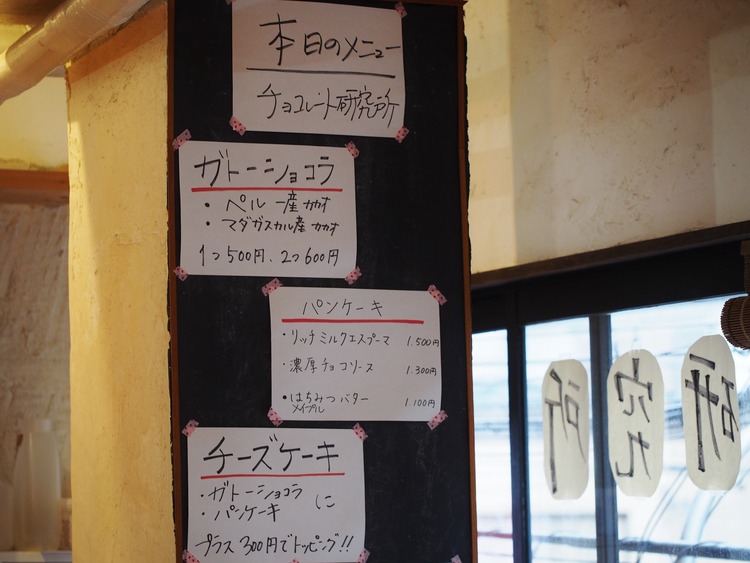 本日のメニュー
チョコレート研究所
ガトーショコラ
・ペルー産カカオ
・マダガスカル産カカオ
1つ500円、2つ600円
パンケーキ
・リッチミルクエスプーマ 1.500円
・濃厚チョコソース 1.300円
・はちみつバター 1.100円
メイプル
チーズケーキ
・ガトーショコラ
・パンケーキ に
プラス300円でトッピング!!
研究所